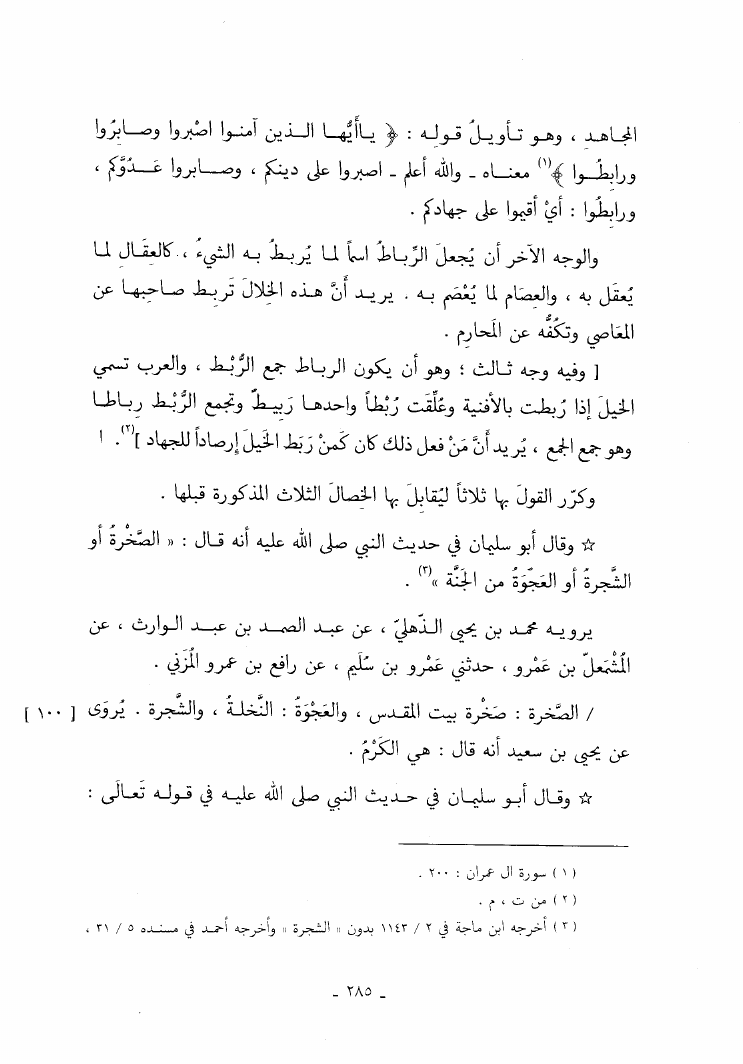 المجاهد ، وهو تأويلُ قوله : ﴿ ياأَيُّها الذين آمنوا اصْبِروا وصابِرُوا
ورابِطُوا ﴾(١) معناه ـ والله أعلم ـ اصبروا على دينكم ، وصابروا عَدُوَّكم ،
ورابِطُوا : أيْ أقيموا على جهادكم .
والوجه الآخر أن يُجعلَ الرِّباطُ اسماً لما يُربطُ به الشيءُ ، كالعِقَال لما
يُعقَل به ، والعِصَام لما يُعْصَم به . يريد أَنَّ هذه الخِلالَ تَربِط صاحبها عن
المعَاصي وتكُفُّه عن المَحارِم .
[ وفيه وجه ثالث ؛ وهو أن يكون الرباط جمع الرُّبْط ، والعرب تسمي
الخيلَ إذا رُبطت بالأفنية وعُلِّقت رُبُطاً واحدها رَبِيطٌ وتجمع الرُّبْط رباطا
وهو جمع الجمع ، يُريد أَنَّ مَنْ فعل ذلك كان كَمَنْ رَبَط الخيلَ إرصاداً للجهاد ](٢). ا
وكرّر القولَ بها ثلاثاً ليُقابلَ بها الخصالَ الثلاث المذكورة قبلها .
☆ وقال أبو سليمان في حديث النبي صلى الله عليه أنه قال : « الصَّخْرةُ أو
الشَّجرةُ أو العَجْوَةُ من الجَنَّة »(٣) .
يرويه محمد بن يحيى الذّهليّ ، عن عبد الصمد بن عبد الوارث ، عن
المُشْمَعلّ بن عَمْرو ، حدثني عَمْرو بن سُلَيم ، عن رافع بن عمرو المُزَني .
/ الصَّخرة : صَخْرة بيت المقدس ، والعَجْوَةُ : النَّخلةُ ، والشَّجرة . يُروَى [ ١٠٠ ]
عن يحيى بن سعيد أنه قال : هي الكَرْمُ .
☆ وقال أبو سليمان في حديث النبي صلى الله عليه في قوله تَعالَى :
(١) سورة ال عمران : ٢٠٠ .
(٢) من ت ، م .
(٣) أخرجه ابن ماجة في ٢ / ١١٤٣ بدون « الشجرة » وأخرجه أحمد في مسنده ٥ / ٣١ ،
ـ ٢٨٥ ـ